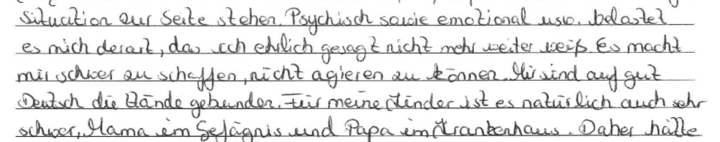 Situation zur Seite stehen. Psychisch sowie emotional usw. belastet
es mich derart, das ich ehrlich gesagt nicht mehr weiter weiß. Es macht
mir schwer zu schaffen, nicht agieren zu können. Mir sind auf gut
Deutsch die Hände gebunden. Für meine Kinder ist es natürlich auch sehr
schwer, Mama im Gefägnis und Papa im Krankenhaus. Daher hätte